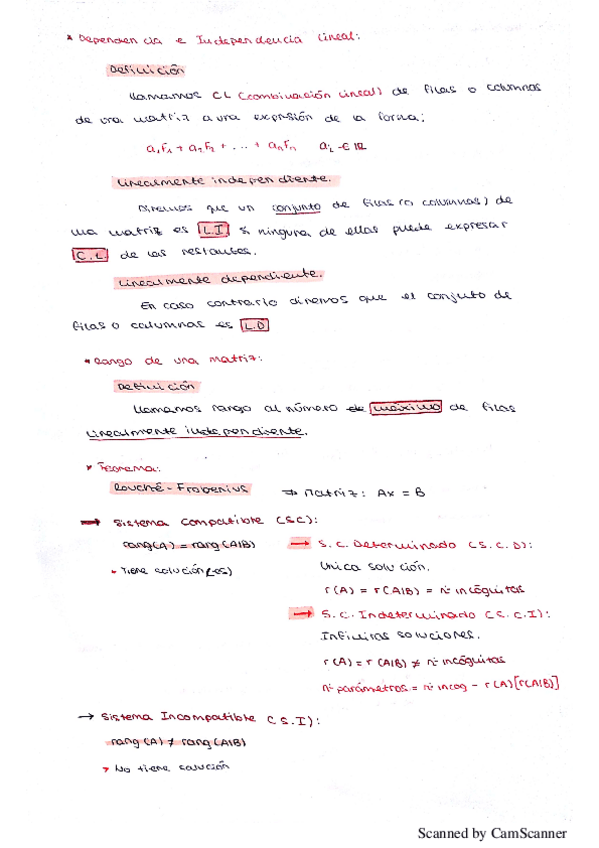 * Dependencia e Independencia lineal:
Definición
llamamos CL (combinación lineal) de filas o columnas
de una matriz a una expresión de la forma:
a₁F₁ + a₂F₂ + ... + aₙFₙ aᵢ ∈ ℝ
linealmente independiente.
Diremos que un conjunto de filas (o columnas) de
una matriz es L.I si ninguna de ellas puede expresar
C.L de las restantes.
linealmente dependiente.
En caso contrario diremos que el conjunto de
filas o columnas es L.D
* Rango de una matriz:
Definición
llamamos rango al número de máximo de filas
linealmente independiente.
* Teorema:
Rouché-Frobenius ⇒ Matriz: Ax = B
→ Sistema Compatible (SC):
rang(A) = rang(A|B)
• Tiene solución(es)
→ S.C. Determinado (S.C.D):
Única solución.
r(A) = r(A|B) = nº incógnitas
→ S.C. Indeterminado (S.C.I):
Infinitas soluciones.
r(A) = r(A|B) ≠ nº incógnitas
nº parámetros = nº incog - r(A)[r(A|B)]
→ Sistema Incompatible (S.I):
rang(A) ≠ rang(A|B)
• No tiene solución
Scanned by CamScanner